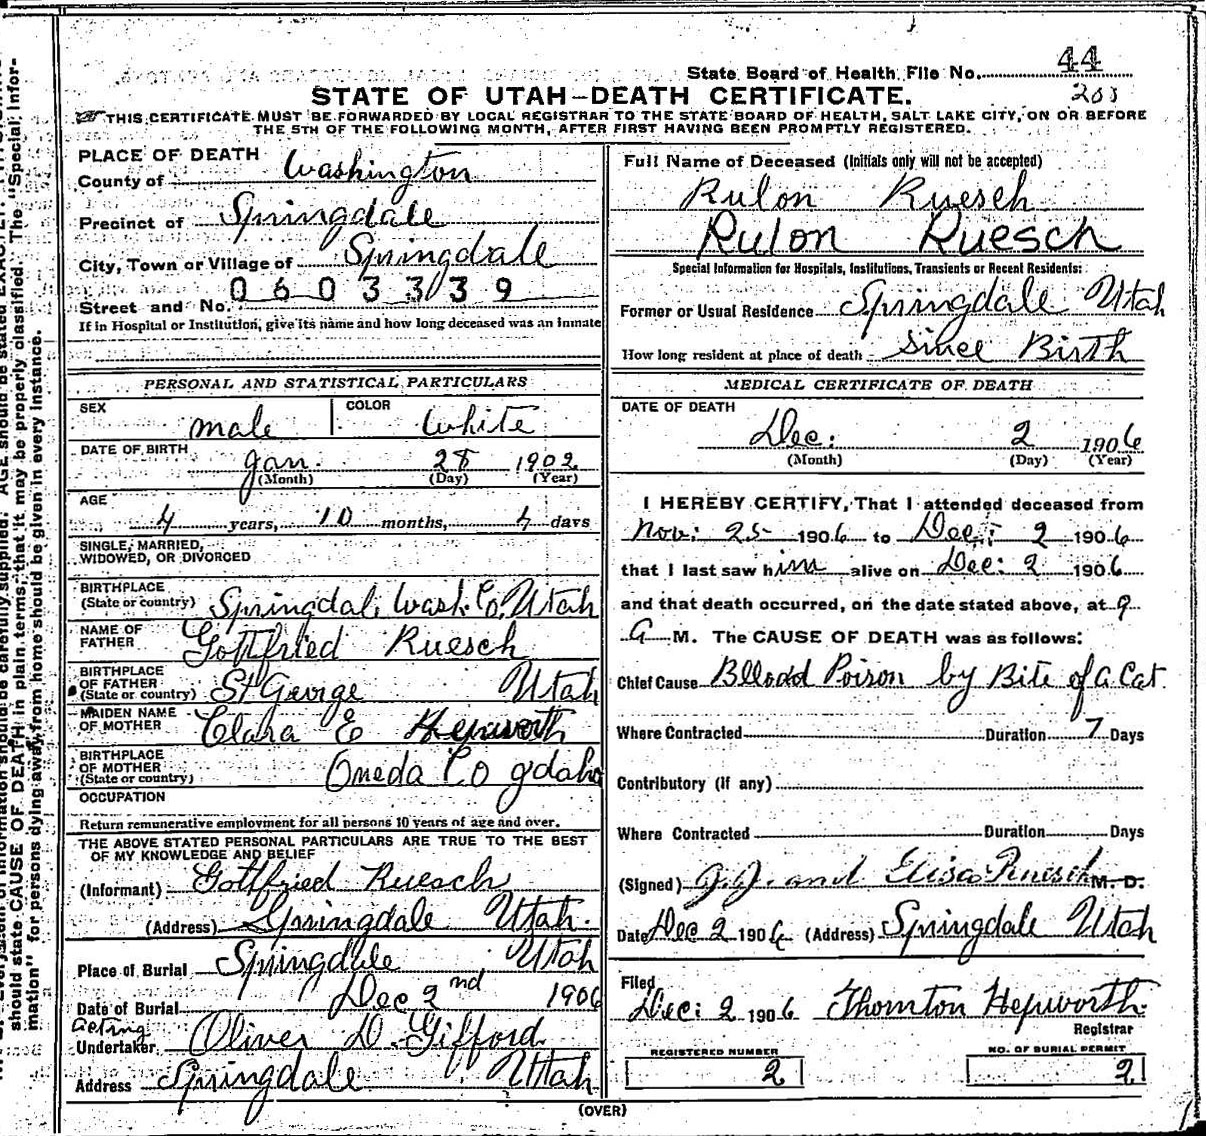 State Board of Health File No. 44
203
STATE OF UTAH-DEATH CERTIFICATE.
THIS CERTIFICATE MUST BE FORWARDED BY LOCAL REGISTRAR TO THE STATE BOARD OF HEALTH, SALT LAKE CITY, ON OR BEFORE
THE 5TH OF THE FOLLOWING MONTH, AFTER FIRST HAVING BEEN PROMPTLY REGISTERED.
PLACE OF DEATH
County of Washington
Precinct of Springdale
City, Town or Village of Springdale
Street and No. 0603339
If in Hospital or Institution, give its name and how long deceased was an inmate
PERSONAL AND STATISTICAL PARTICULARS
SEX male COLOR White
DATE OF BIRTH Jan. 28 1902
(Month) (Day) (Year)
AGE
4 years, 10 months, 4 days
SINGLE, MARRIED,
WIDOWED, OR DIVORCED
BIRTHPLACE
(State or country) Springdal, Wash. Co, Utah
NAME OF
FATHER Gottfried Ruesch
BIRTHPLACE
OF FATHER
(State or country) St George Utah
MAIDEN NAME
OF MOTHER Clara E Hepworth
BIRTHPLACE
OF MOTHER
(State or country) Oneda Co Idaho
OCCUPATION
Return remunerative employment for all persons 10 years of age and over.
THE ABOVE STATED PERSONAL PARTICULARS ARE TRUE TO THE BEST
OF MY KNOWLEDGE AND BELIEF
(Informant) Gottfried Ruesch
(Address) Springdale Utah.
Place of Burial Springdale Utah
Date of Burial Dec 2nd 1906
acting
Undertaker Oliver D. Gifford
Address Springdale Utah
Full Name of Deceased (Initials only will not be accepted)
Rulon Ruesch
Rulon Ruesch
Special Information for Hospitals, Institutions, Transients or Recent Residents:
Former or Usual Residence Springdale Utah
How long resident at place of death Since Birth
MEDICAL CERTIFICATE OF DEATH
DATE OF DEATH
Dec. 2 1906
(Month) (Day) (Year)
I HEREBY CERTIFY, That I attended deceased from
Nov: 25 1906 to Dec: 2 1906
that I last saw him alive on Dec: 2 1906
and that death occurred, on the date stated above, at 9
A M. The CAUSE OF DEATH was as follows:
Chief Cause Bllodd Poison by Bite of a Cat
Where Contracted Duration 7 Days
Contributory (if any)
Where Contracted Duration Days
(Signed) J. J. and Elisa Ruesch M. D.
Date Dec 2 1906 (Address) Springdale Utah
Filed
Dec: 2 1906 Thornton Hepworth
Registrar
REGISTERED NUMBER
2
NO. OF BURIAL PERMIT
2
(OVER)
should state CAUSE OF DEATH in plain terms, that it may be properly classified. The "Special Infor-
mation" for persons dying away from home should be given in every instance.